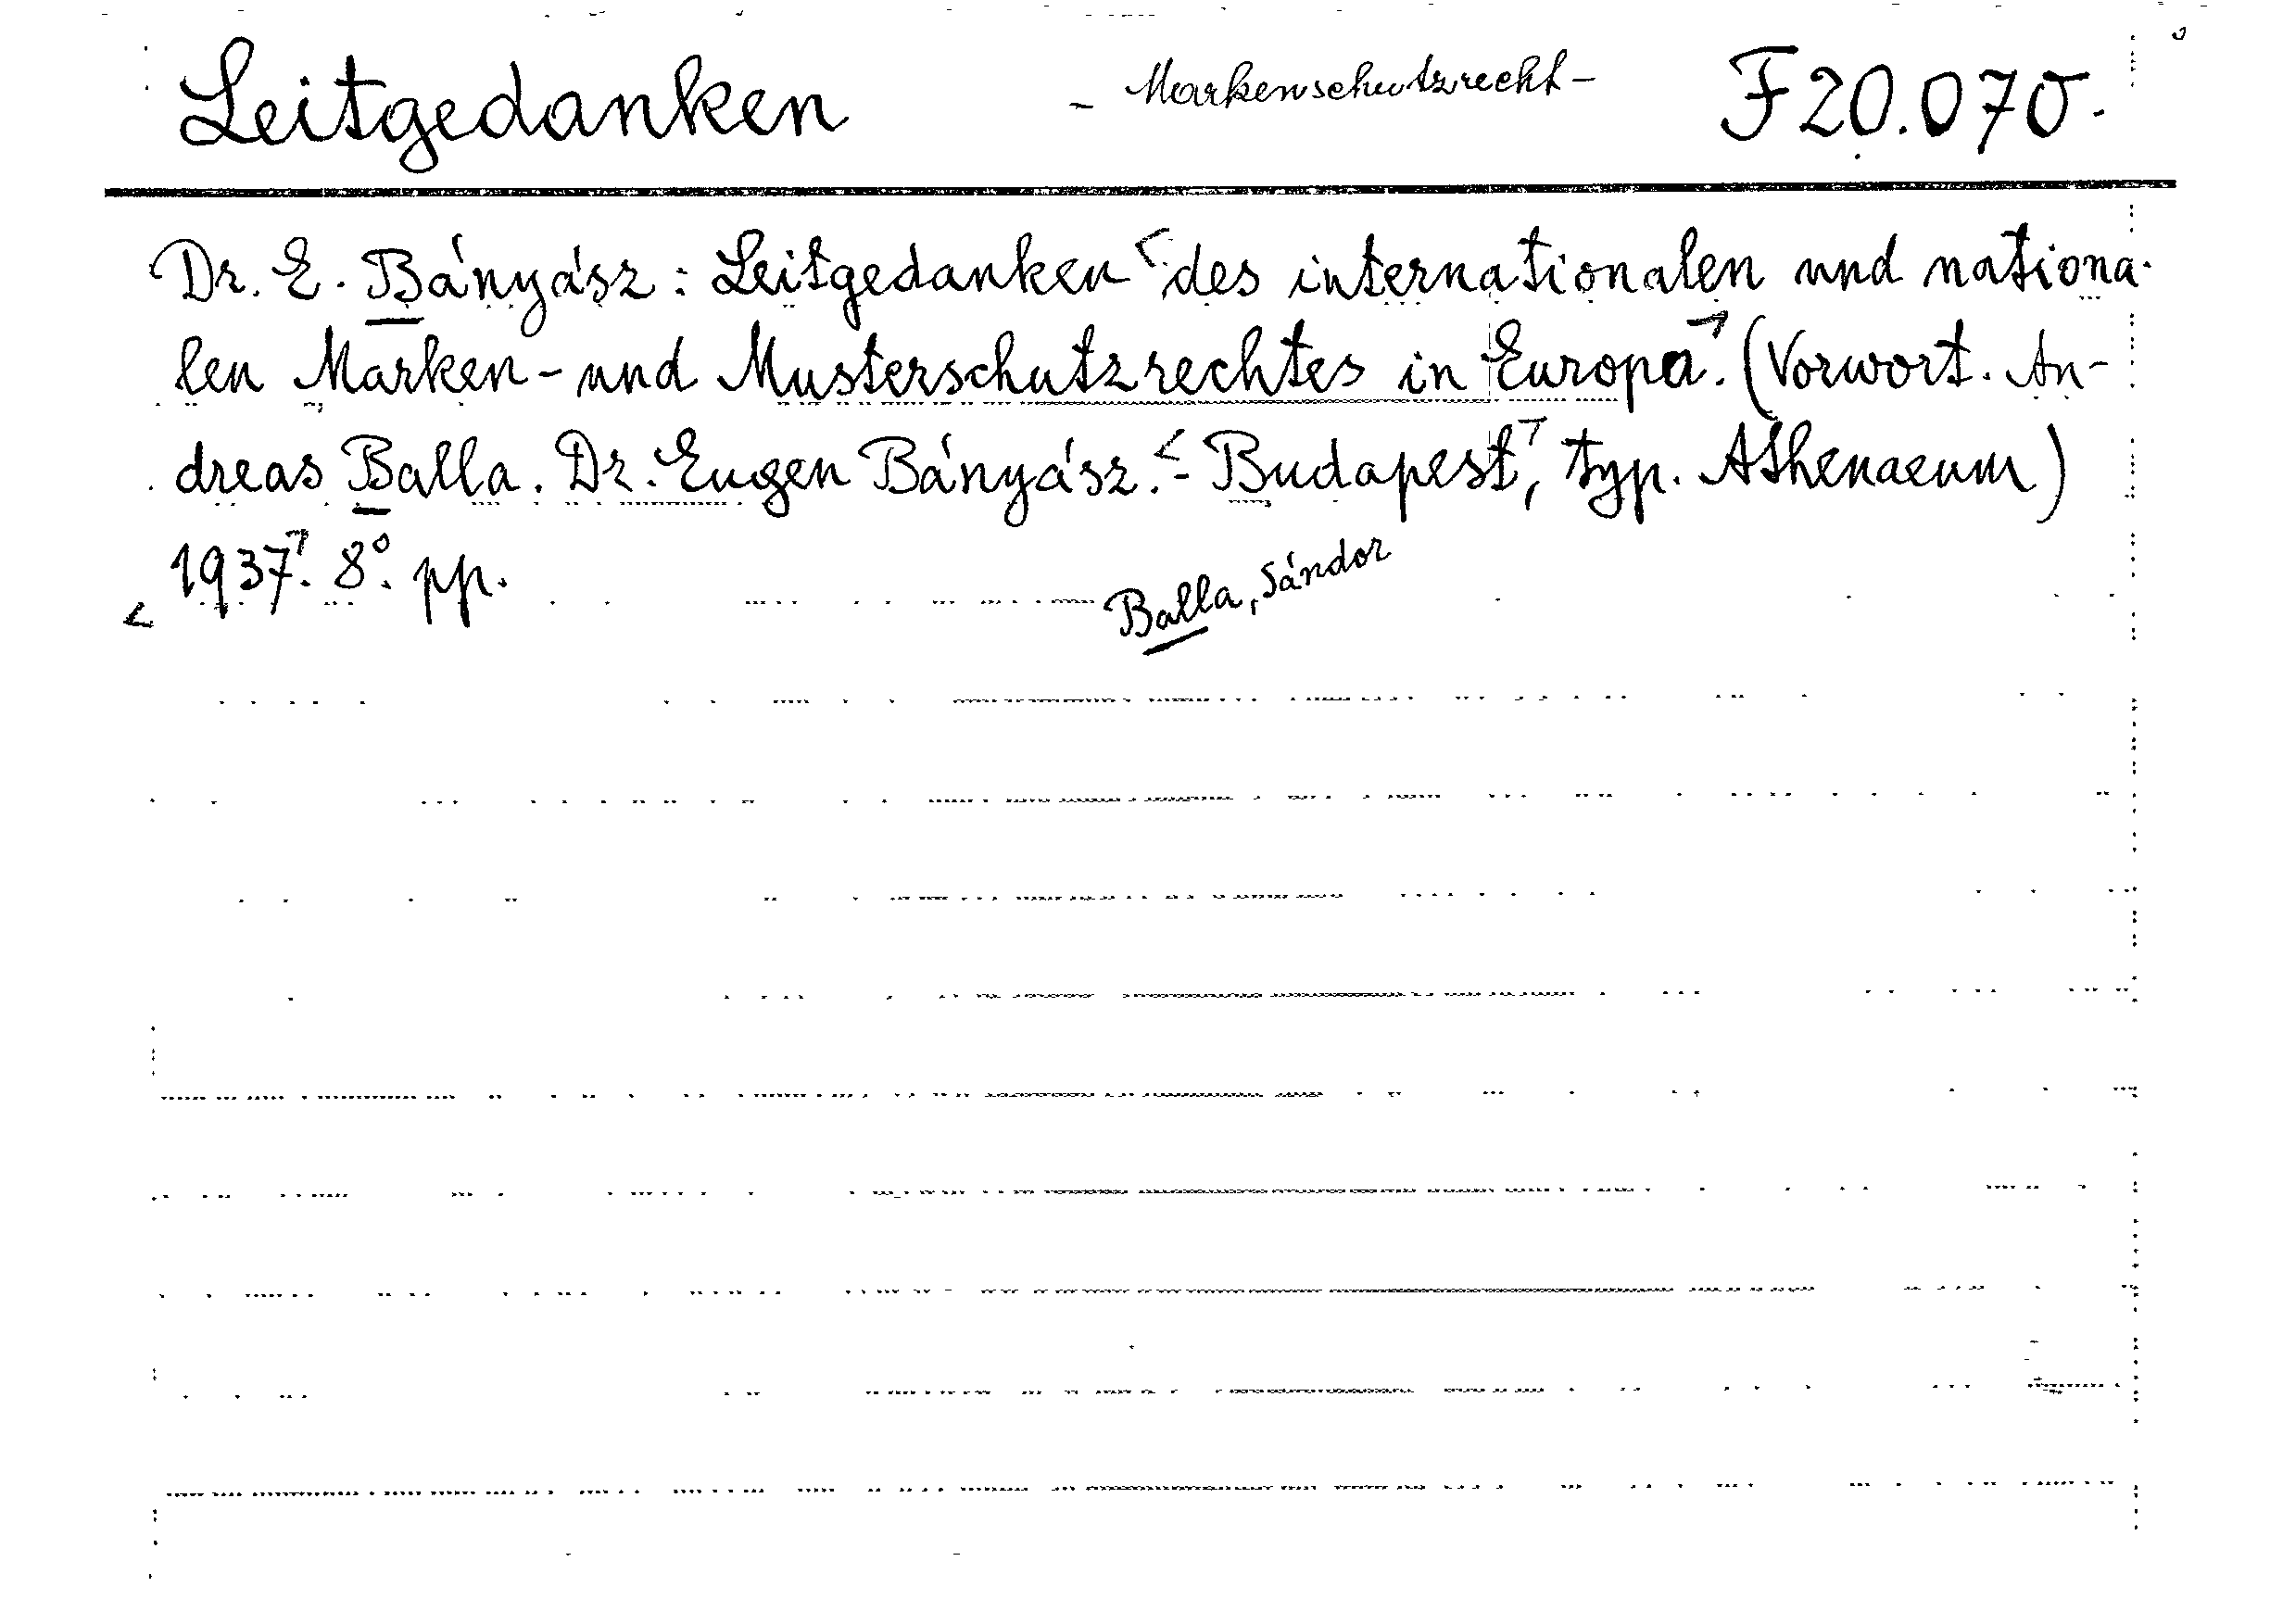 Leitgedanken - Markenschutzrecht - F 20.070.
Dr. E. Bányász: Leitgedanken < des internationalen und nationa-
len Marken- und Musterschutzrechtes in Europa. (Vorwort. An-
dreas Balla. Dr. Eugen Bányász. <- Budapest, typ. Athenaeum)
1937. 8°. pp.
Balla, Sándor